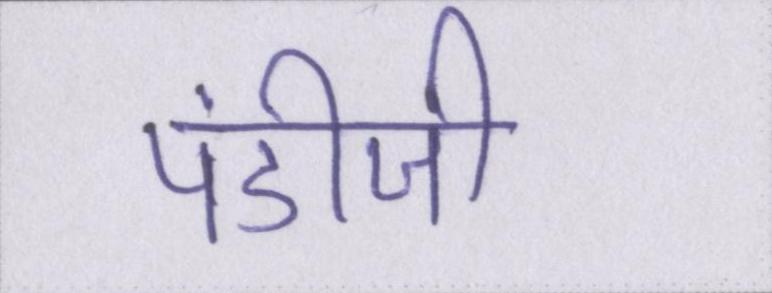 पंडीजी